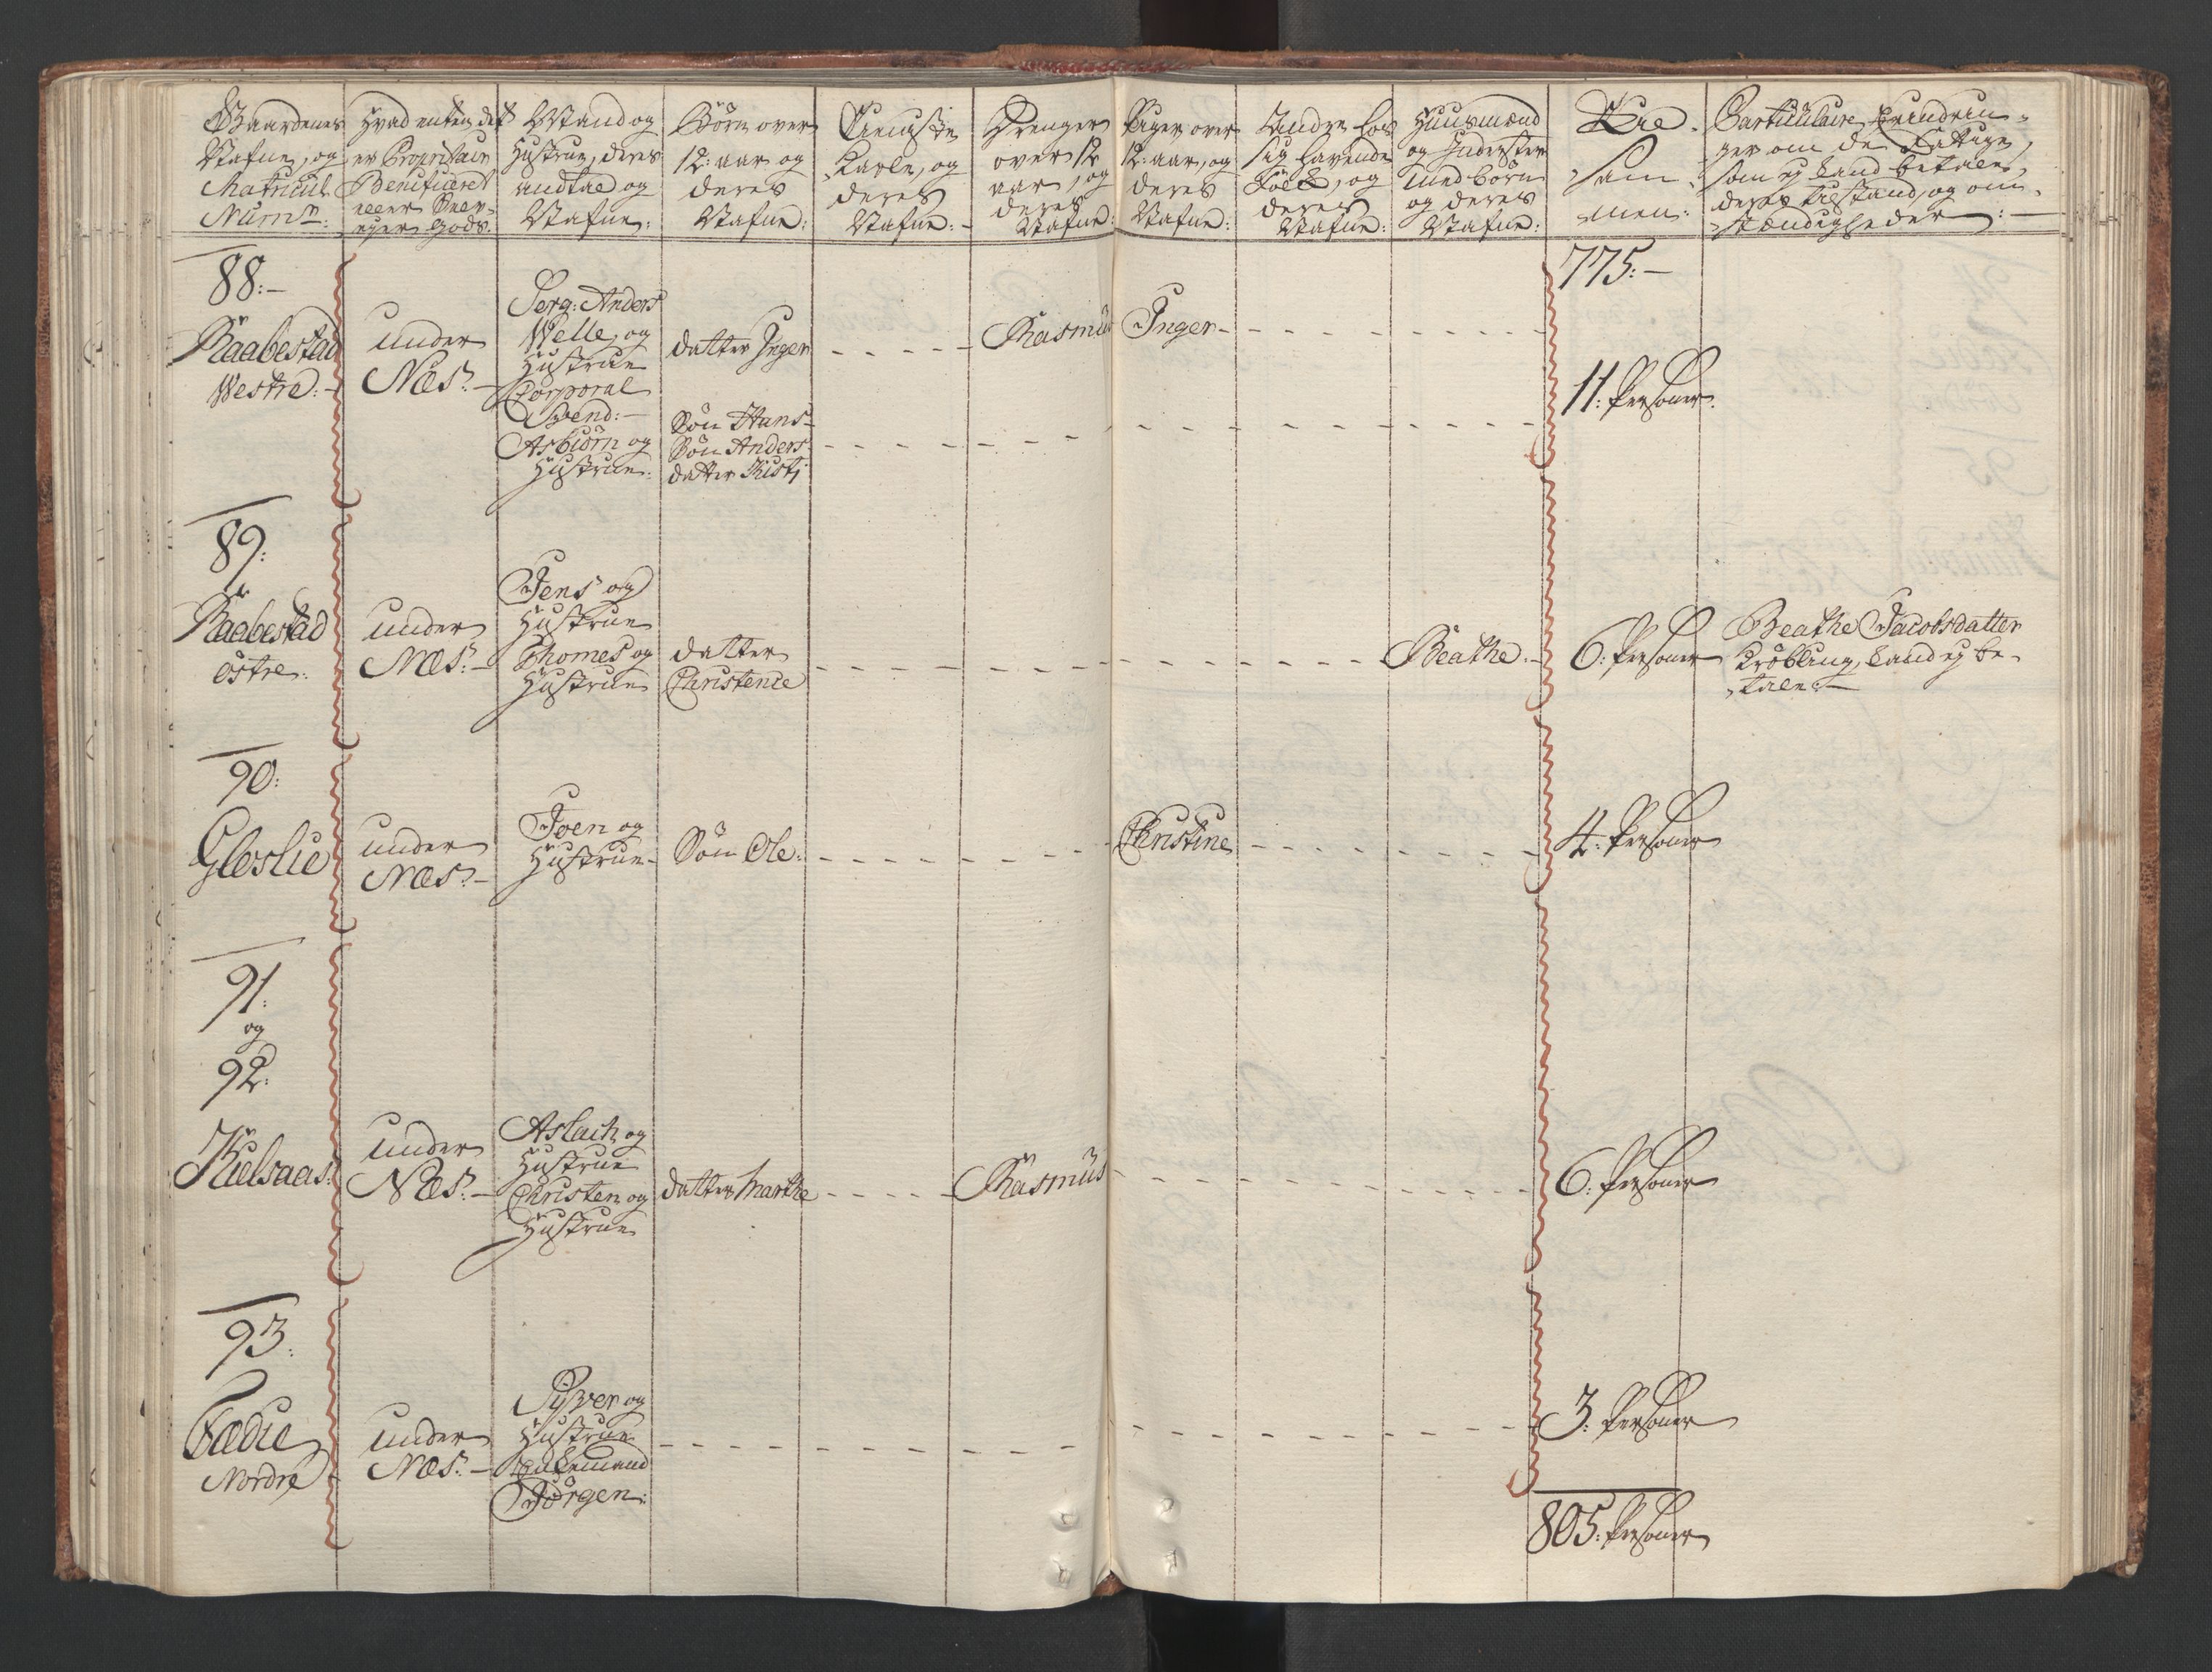 Gaardenes
Nafne, og
Matricul
Num̅r:
Hvad enten det
er Propritair
Beneficeret
eller Selv-
ejer Gods.
Mand og
Hustrue, deres
andtal og
Nafne:
Börn over
12: aar og
deres
Nafne:
Tieneste
Karle, og
deres
Nafne:
Drenger
over 12
aar, og
deres
Nafne:
Piger over
12: aar, og
deres
Nafne:
Andre hos
sig havende
Folk, og
deres
Nafne:
Huusmænd
og Inderster
med börn
og deres
Nafne:
Tilsam-
men:
Particulaire Erindrin-
ger om de Fattige,
som ej kand betale,
deres tilstand, og om-
stændigheder:
775:
88:
Raabestad
Westre:
under
Næs:
Serg: Anders
Welle, og
Hustrue
Corporal
Svend:
Asbiörn og
Hustrue:
datter Inger
Sön Hans
Sön Anders
datter Kisti
Rasmus
Inger
11: Personer
89:
Raabestad
östre:
under
Næs:
Jens og
Hustrue
Thomes og
Hustrue
datter
Christence
Beathe
6: Personer
Beathe Jacobsdatter
Kröbling, kand ej be-
tale:
90:
Gleslie
under
Næs:
Joen og
Hustrue
Sön Ole:
Christine
4: Personer
91:
og
92:
Kielsaas:
under
Næs:
Aslach og
Hustrue
Christen og
Hustrue
datter Marthe
Rasmus
6: Personer
93:
Fædie
Nordre
under
Næs:
Syver og
Hustrue
Enkemand
Jörgen:
3: Personer
805: Personer